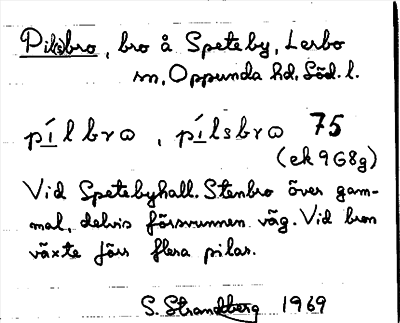 Pil(s)bro, bro å Speteby, Lerbo
sn, Oppunda hd, Söd. l.
pílbrω, pílsbrω 75
(ek 9G8g)
Vid Spetebyhall. Stenbro över gam-
mal, delvis försvunnen väg. Vid bron
växte förr flera pilar.
S. Strandberg 1969